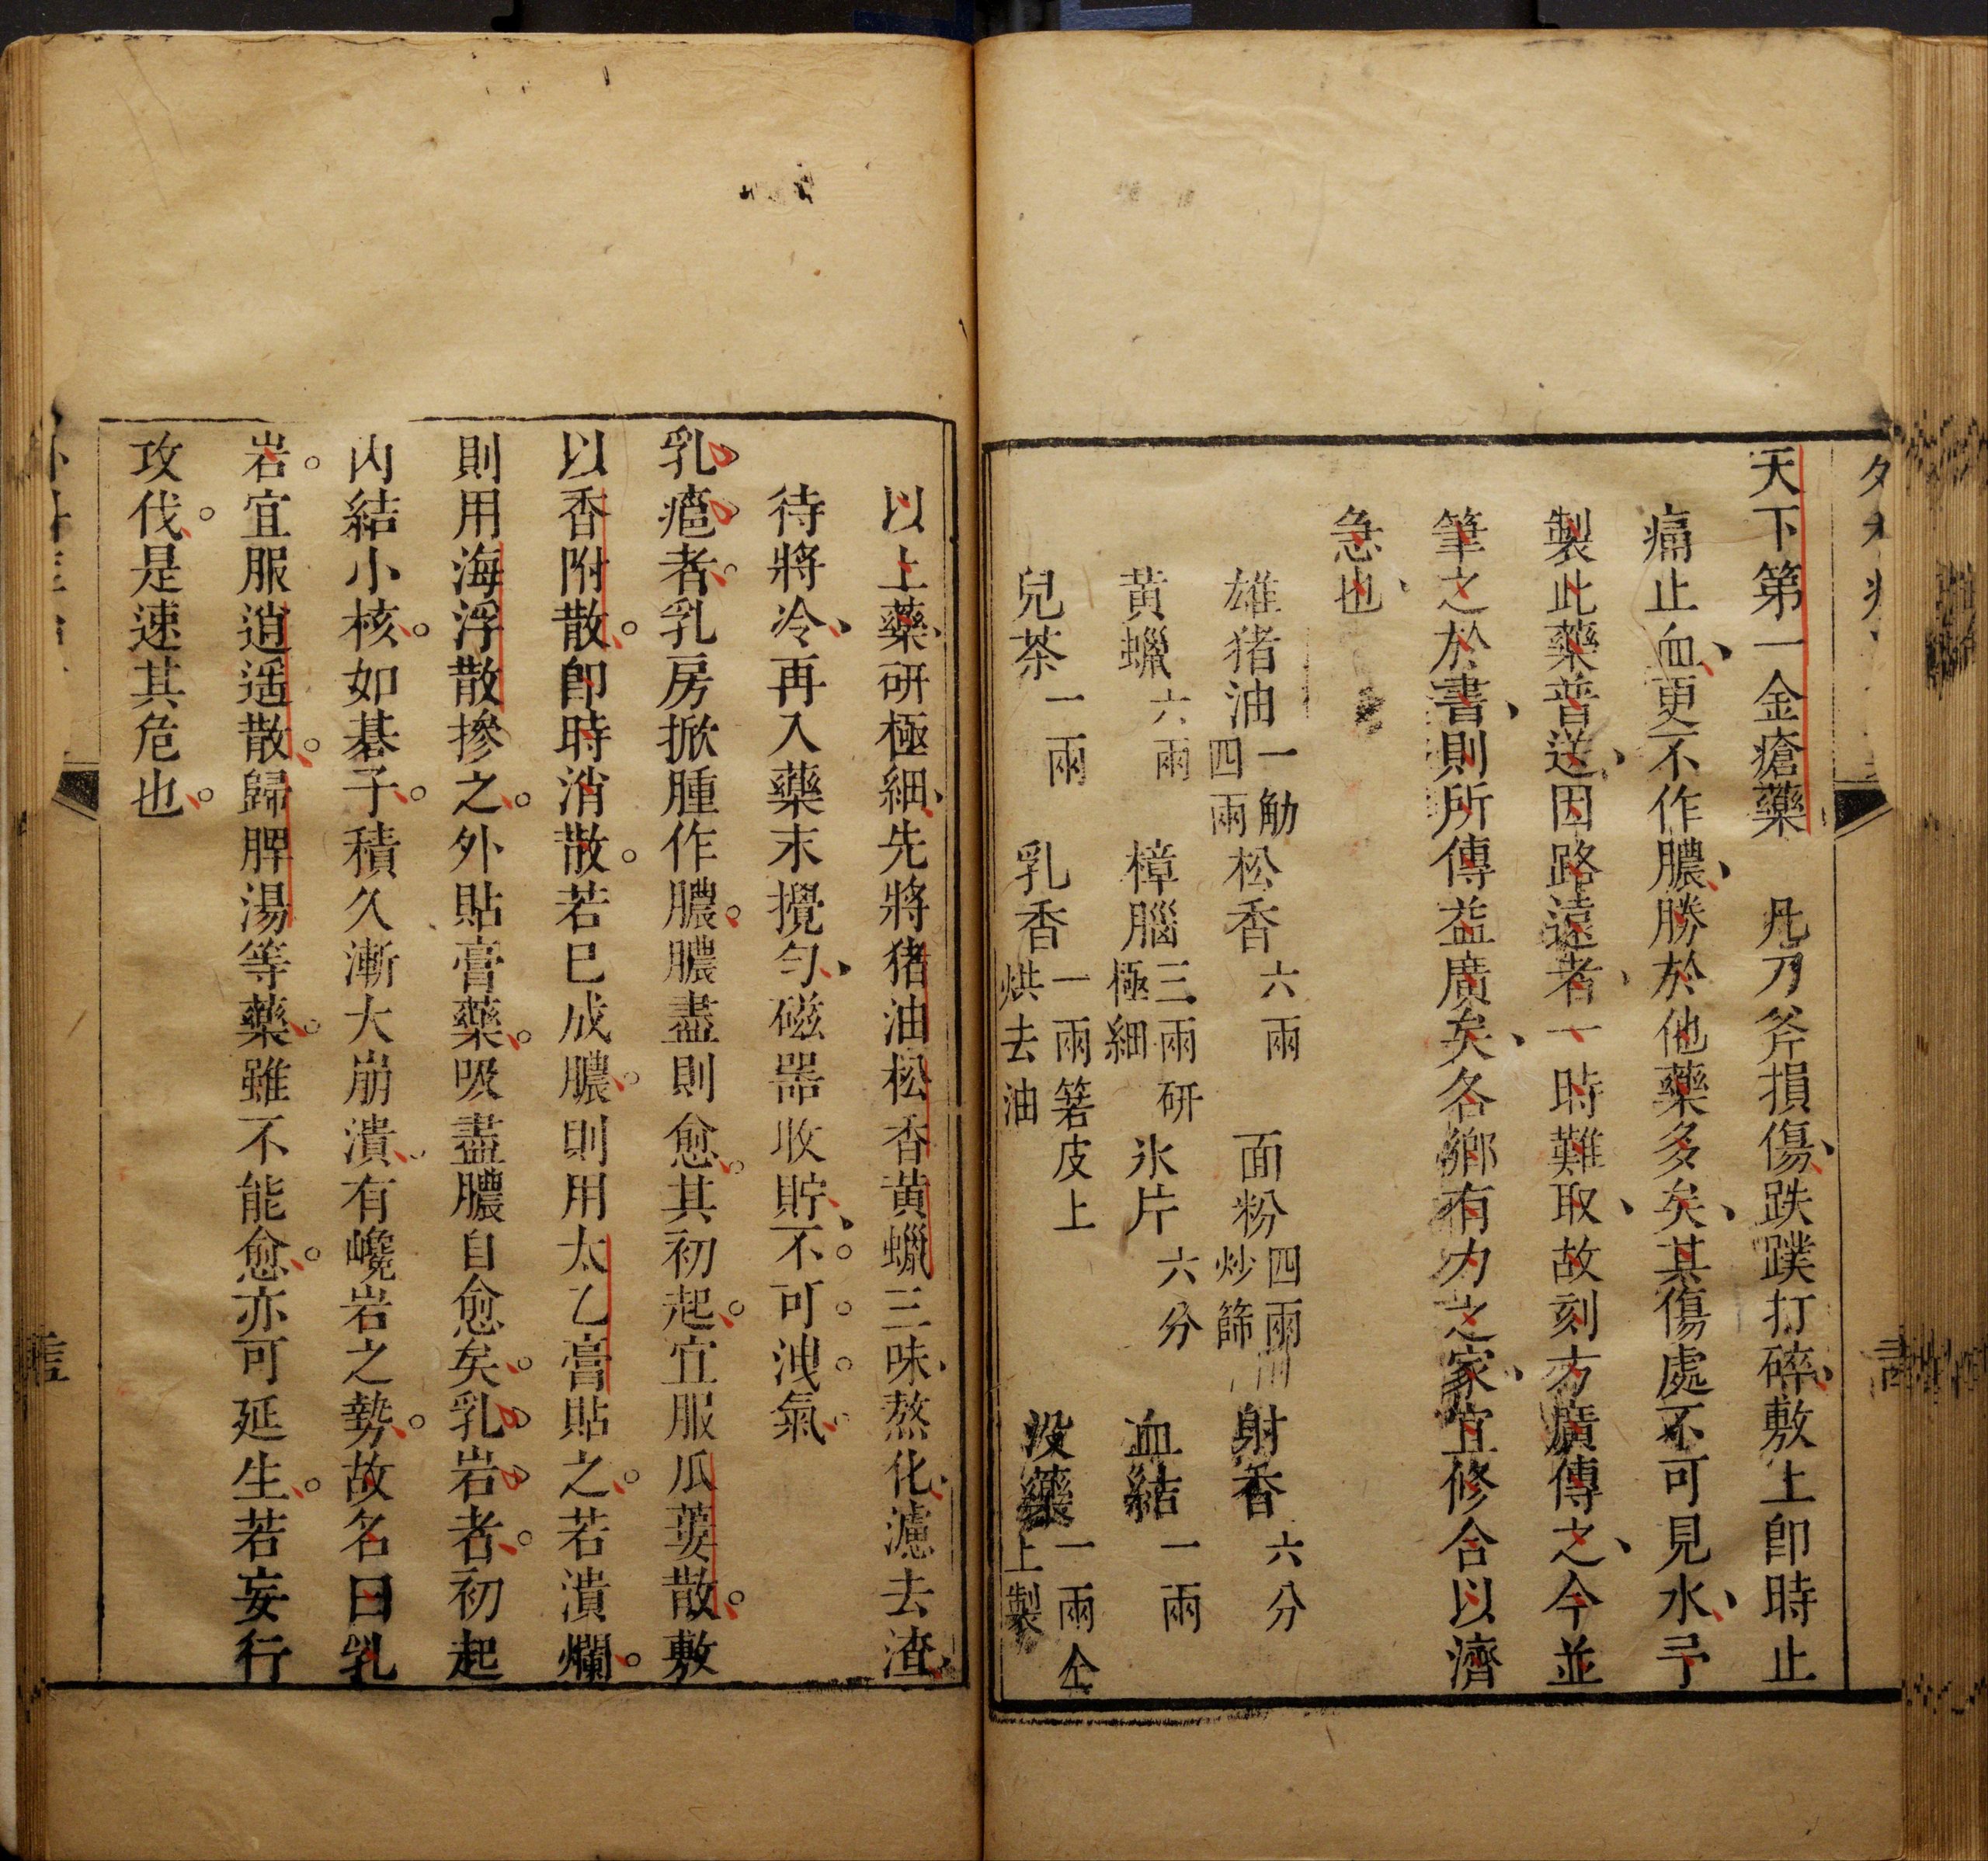 天下第一金瘡藥　凡刀斧損傷、跌蹼打碎、敷上卽時止
痛止血、更不作膿、勝於他藥多矣、其傷處不可見水、予
製此藥普送、因路遠者、一時難取、故刻方廣傳之、今並
筆之於書、則所傳益廣矣、各鄉有力之家、宜修合以濟
急也、
雄猪油一觔四兩　松香六兩　面粉四兩炒篩　射香六分
黃蠟六兩　樟腦三兩研極細　氷片六分　血結一兩
兒茶一兩　乳香一兩箬皮上烘去油　沒藥一兩仝上製
以上藥、研極細、先將猪油松香黃蠟三味、熬化、濾去渣、
待將冷、再入藥末攪勻、磁器收貯、不可洩氣
乳瘡者。乳房掀腫作膿。膿盡則愈。其初起。宜服瓜蔞散。敷
以香附散。卽時消散。若已成膿。則用太乙膏貼之。若潰爛。
則用海浮散摻之。外貼膏藥。吸盡膿自愈矣。乳岩者。初起
內結小核。如碁子。積久漸大崩潰。有巉岩之勢。故名曰乳
岩。宜服逍遥散。歸脾湯等藥。雖不能愈。亦可延生。若妄行
攻伐。是速其危也。